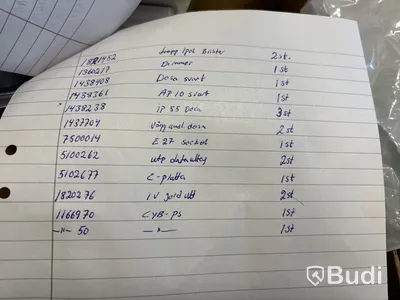 1821452 trapp 1pol Blister 2st.
1360217 Dimmer 1st
1438408 Dosa svart 1st
1439361 AP 10 svart 1st
1438238 IP 55 Dosa 3st
1437704 Vägguttl dosa 2st
7500014 E27 sockel 1st
5100262 utp datauttag 2st
5102677 C-platta 1st
1820276 1V jord utt 2st
1166970 CYB-ps 1st
—"— 50 —"— 1st
Budi